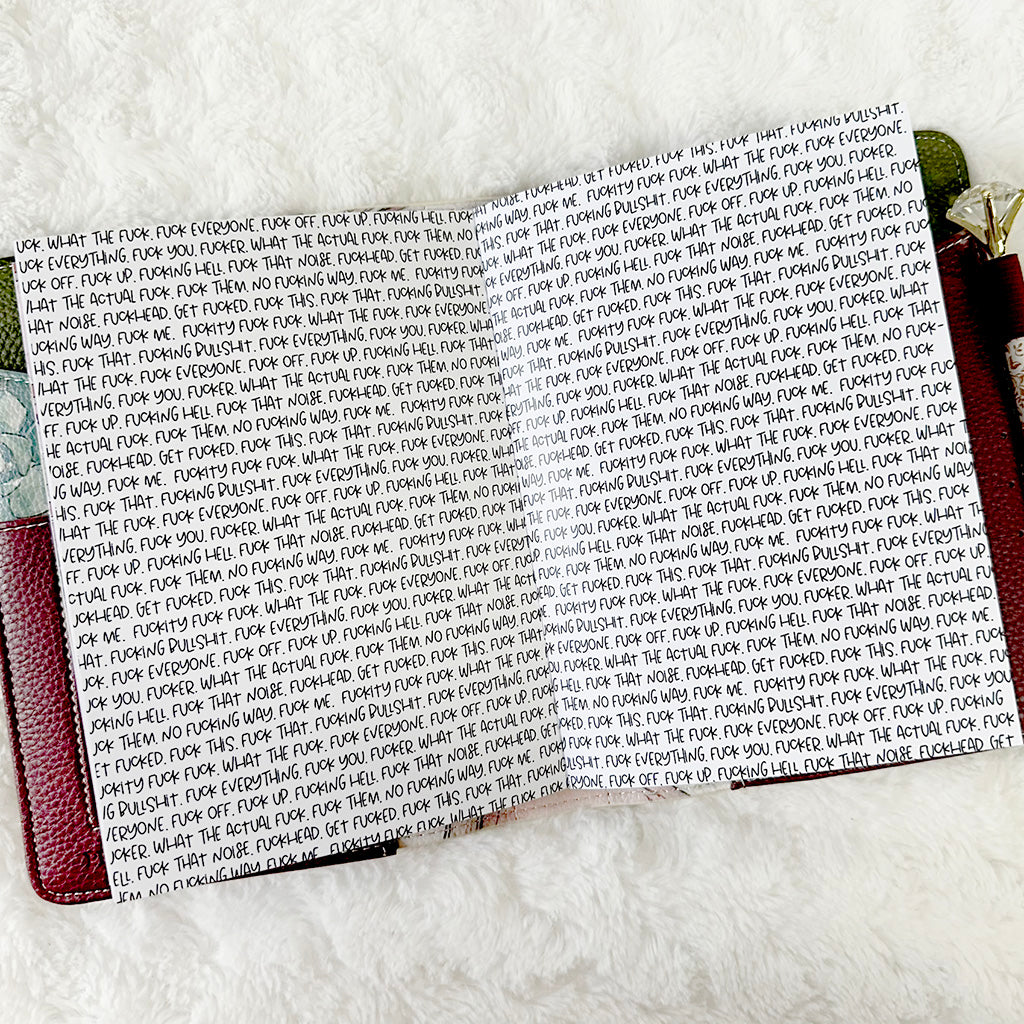 WHAT THE FUCK. FUCK EVERYONE. FUCK OFF. FUCK UP. FUCKING HELL. FUCK
EVERYTHING. FUCK YOU, FUCKER. WHAT THE ACTUAL FUCK. FUCK THEM. NO
OFF. FUCK UP. FUCKING HELL. FUCK THAT NOISE. FUCKHEAD. GET FUCKED.
THE ACTUAL FUCK. FUCK THEM. NO FUCKING WAY. FUCK ME. FUCKITY FUCK
NOISE. FUCKHEAD. GET FUCKED. FUCK THIS. FUCK THAT. FUCKING BULLSHIT.
WAY. FUCK ME. FUCKITY FUCK FUCK. WHAT THE FUCK. FUCK EVERYONE.
FUCK THAT. FUCKING BULLSHIT. FUCK EVERYTHING. FUCK YOU, FUCKER. WHAT
THE FUCK. FUCK EVERYONE. FUCK OFF. FUCK UP. FUCKING HELL. FUCK THAT
FUCK YOU, FUCKER. WHAT THE ACTUAL FUCK. FUCK THEM. NO
FUCK UP. FUCKING HELL. FUCK THAT NOISE. FUCKHEAD. GET FUCKED. FUCK
ACTUAL FUCK. FUCK THEM. NO FUCKING WAY. FUCK ME. FUCKITY FUCK FUCK.
FUCKHEAD. GET FUCKED. FUCK THIS. FUCK THAT. FUCKING BULLSHIT. FUCK
WAY. FUCK ME. FUCKITY FUCK FUCK. WHAT THE FUCK. FUCK EVERYONE. FUCK
FUCK THAT. FUCKING BULLSHIT. FUCK EVERYTHING. FUCK YOU, FUCKER.
THE FUCK. FUCK EVERYONE. FUCK OFF. FUCK UP. FUCKING HELL. FUCK THAT
FUCK YOU, FUCKER. WHAT THE ACTUAL FUCK. FUCK THEM. NO
FUCK UP. FUCKING HELL. FUCK THAT NOISE. FUCKHEAD. GET FUCKED. FUCK THIS.
FUCK. FUCK THEM. NO FUCKING WAY. FUCK ME. FUCKITY FUCK FUCK. WHAT THE
GET FUCKED. FUCK THIS. FUCK THAT. FUCKING BULLSHIT. FUCK
ME. FUCKITY FUCK FUCK. WHAT THE FUCK. FUCK EVERYONE. FUCK OFF. FUCK
FUCKING BULLSHIT. FUCK EVERYTHING. FUCK YOU, FUCKER. WHAT THE
FUCK EVERYONE. FUCK OFF. FUCK UP. FUCKING HELL. FUCK THAT NOISE.
YOU, FUCKER. WHAT THE ACTUAL FUCK. FUCK THEM. NO FUCKING WAY. FUCK
HELL. FUCK THAT NOISE. FUCKHEAD. GET FUCKED. FUCK THIS. FUCK THAT.
THEM. NO FUCKING WAY. FUCK ME. FUCKITY FUCK FUCK. WHAT THE FUCK.
FUCKED. FUCK THIS. FUCK THAT. FUCKING BULLSHIT. FUCK EVERYTHING. FUCK
FUCK FUCK. WHAT THE FUCK. FUCK EVERYONE. FUCK OFF. FUCK UP.
BULLSHIT. FUCK EVERYTHING. FUCK YOU, FUCKER. WHAT THE ACTUAL FUCK.
FUCK OFF. FUCK UP. FUCKING HELL. FUCK THAT NOISE. FUCKHEAD. GET
WHAT THE ACTUAL FUCK. FUCK THEM. NO FUCKING WAY. FUCK ME.
FUCK THAT NOISE. FUCKHEAD. GET FUCKED. FUCK THIS. FUCK THAT.
NO FUCKING WAY. FUCK ME. FUCKITY FUCK FUCK. WHAT THE FUCK. FUCK
NOISE. FUCKHEAD. GET FUCKED. FUCK THIS. FUCK THAT. FUCKING BULLSHIT.
WAY. FUCK ME. FUCKITY FUCK FUCK. WHAT THE FUCK. FUCK EVERYONE.
THIS. FUCK THAT. FUCKING BULLSHIT. FUCK EVERYTHING. FUCK YOU, FUCKER.
FUCK. FUCK EVERYONE. FUCK OFF. FUCK UP. FUCKING HELL. FUCK
FUCK YOU, FUCKER. WHAT THE ACTUAL FUCK. FUCK THEM. NO
OFF. FUCK UP. FUCKING HELL. FUCK THAT NOISE. FUCKHEAD. GET FUCKED.
THE ACTUAL FUCK. FUCK THEM. NO FUCKING WAY. FUCK ME. FUCKITY FUCK
FUCKHEAD. GET FUCKED. FUCK THIS. FUCK THAT. FUCKING BULLSHIT.
WAY. FUCK ME. FUCKITY FUCK FUCK. WHAT THE FUCK. FUCK EVERYONE. FUCK
FUCK THAT. FUCKING BULLSHIT. FUCK EVERYTHING. FUCK YOU, FUCKER. WHAT
THE FUCK. FUCK EVERYONE. FUCK OFF. FUCK UP. FUCKING HELL. FUCK THAT
FUCK YOU, FUCKER. WHAT THE ACTUAL FUCK. FUCK THEM. NO
FUCK UP. FUCKING HELL. FUCK THAT NOISE. FUCKHEAD. GET FUCKED. FUCK
THE ACTUAL FUCK. FUCK THEM. NO FUCKING WAY. FUCK ME. FUCKITY FUCK
FUCKHEAD. GET FUCKED. FUCK THIS. FUCK THAT. FUCKING BULLSHIT. FUCK
WAY. FUCK ME. FUCKITY FUCK FUCK. WHAT THE FUCK. FUCK EVERYONE. FUCK
FUCK THAT. FUCKING BULLSHIT. FUCK EVERYTHING. FUCK YOU, FUCKER. WHAT
FUCK. FUCK EVERYONE. FUCK OFF. FUCK UP. FUCKING HELL. FUCK THAT
FUCK YOU, FUCKER. WHAT THE ACTUAL FUCK. FUCK THEM. NO FUCKING WAY.
FUCKING HELL. FUCK THAT NOISE. FUCKHEAD. GET FUCKED. FUCK THIS. FUCK
FUCK THEM. NO FUCKING WAY. FUCK ME. FUCKITY FUCK FUCK. WHAT
GET FUCKED. FUCK THIS. FUCK THAT. FUCKING BULLSHIT. FUCK EVERYTHING.
FUCKITY FUCK FUCK. WHAT THE FUCK. FUCK EVERYONE. FUCK OFF. FUCK UP.
BULLSHIT. FUCK EVERYTHING. FUCK YOU, FUCKER. WHAT THE ACTUAL
FUCK OFF. FUCK UP. FUCKING HELL. FUCK THAT NOISE. FUCKHEAD.
FUCKER. WHAT THE ACTUAL FUCK. FUCK THEM. NO FUCKING WAY. FUCK ME.
HELL. FUCK THAT NOISE. FUCKHEAD. GET FUCKED. FUCK THIS. FUCK
THEM. NO FUCKING WAY. FUCK ME. FUCKITY FUCK FUCK. WHAT THE FUCK.
FUCK THIS. FUCK THAT. FUCKING BULLSHIT. FUCK EVERYTHING. FUCK YOU
FUCK FUCK. WHAT THE FUCK. FUCK EVERYONE. FUCK OFF. FUCK UP. FUCKING
FUCK EVERYTHING. FUCK YOU, FUCKER. WHAT THE ACTUAL FUCK. FUCK
FUCK OFF. FUCK UP. FUCKING HELL. FUCK THAT NOISE. FUCKHEAD. GET